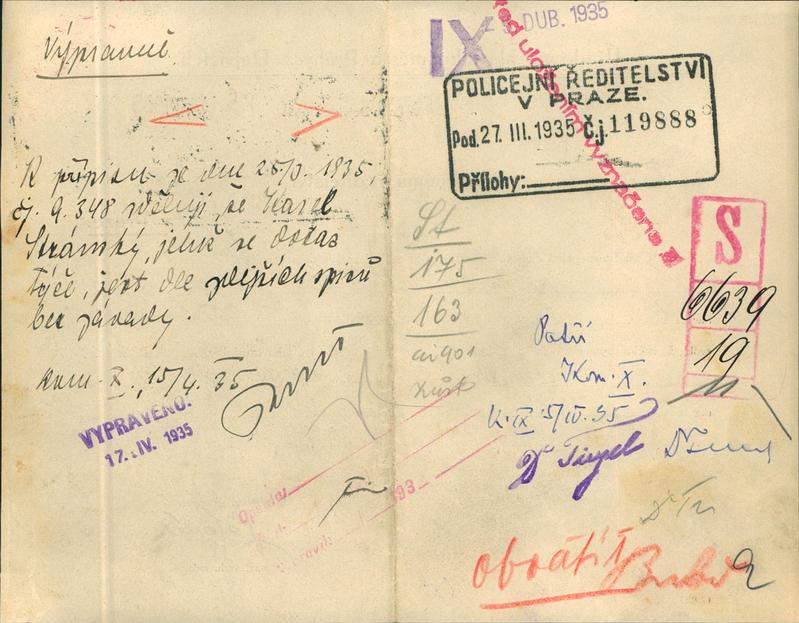 Výpravně
K přípisu ze dne 25/3. 1935,
čj. 9.348 sděluji, že Karel
Stránský, jehož se dotaz
týče, jest dle zdejších spisů
bez závady.
Kom. X., 15/4. 35
VYPRAVENO.
17. IV. 1935
IX
DUB. 1935
POLICEJNÍ ŘEDITELSTVÍ
V PRAZE.
Pod. 27. III. 1935 Č.j. 119888
Přílohy:
před uložením vyznačeno
S
6639
19
St
175
163
Patří
Kom. X.
K. IX 5/IV. 35
Opsal
193
obrátit